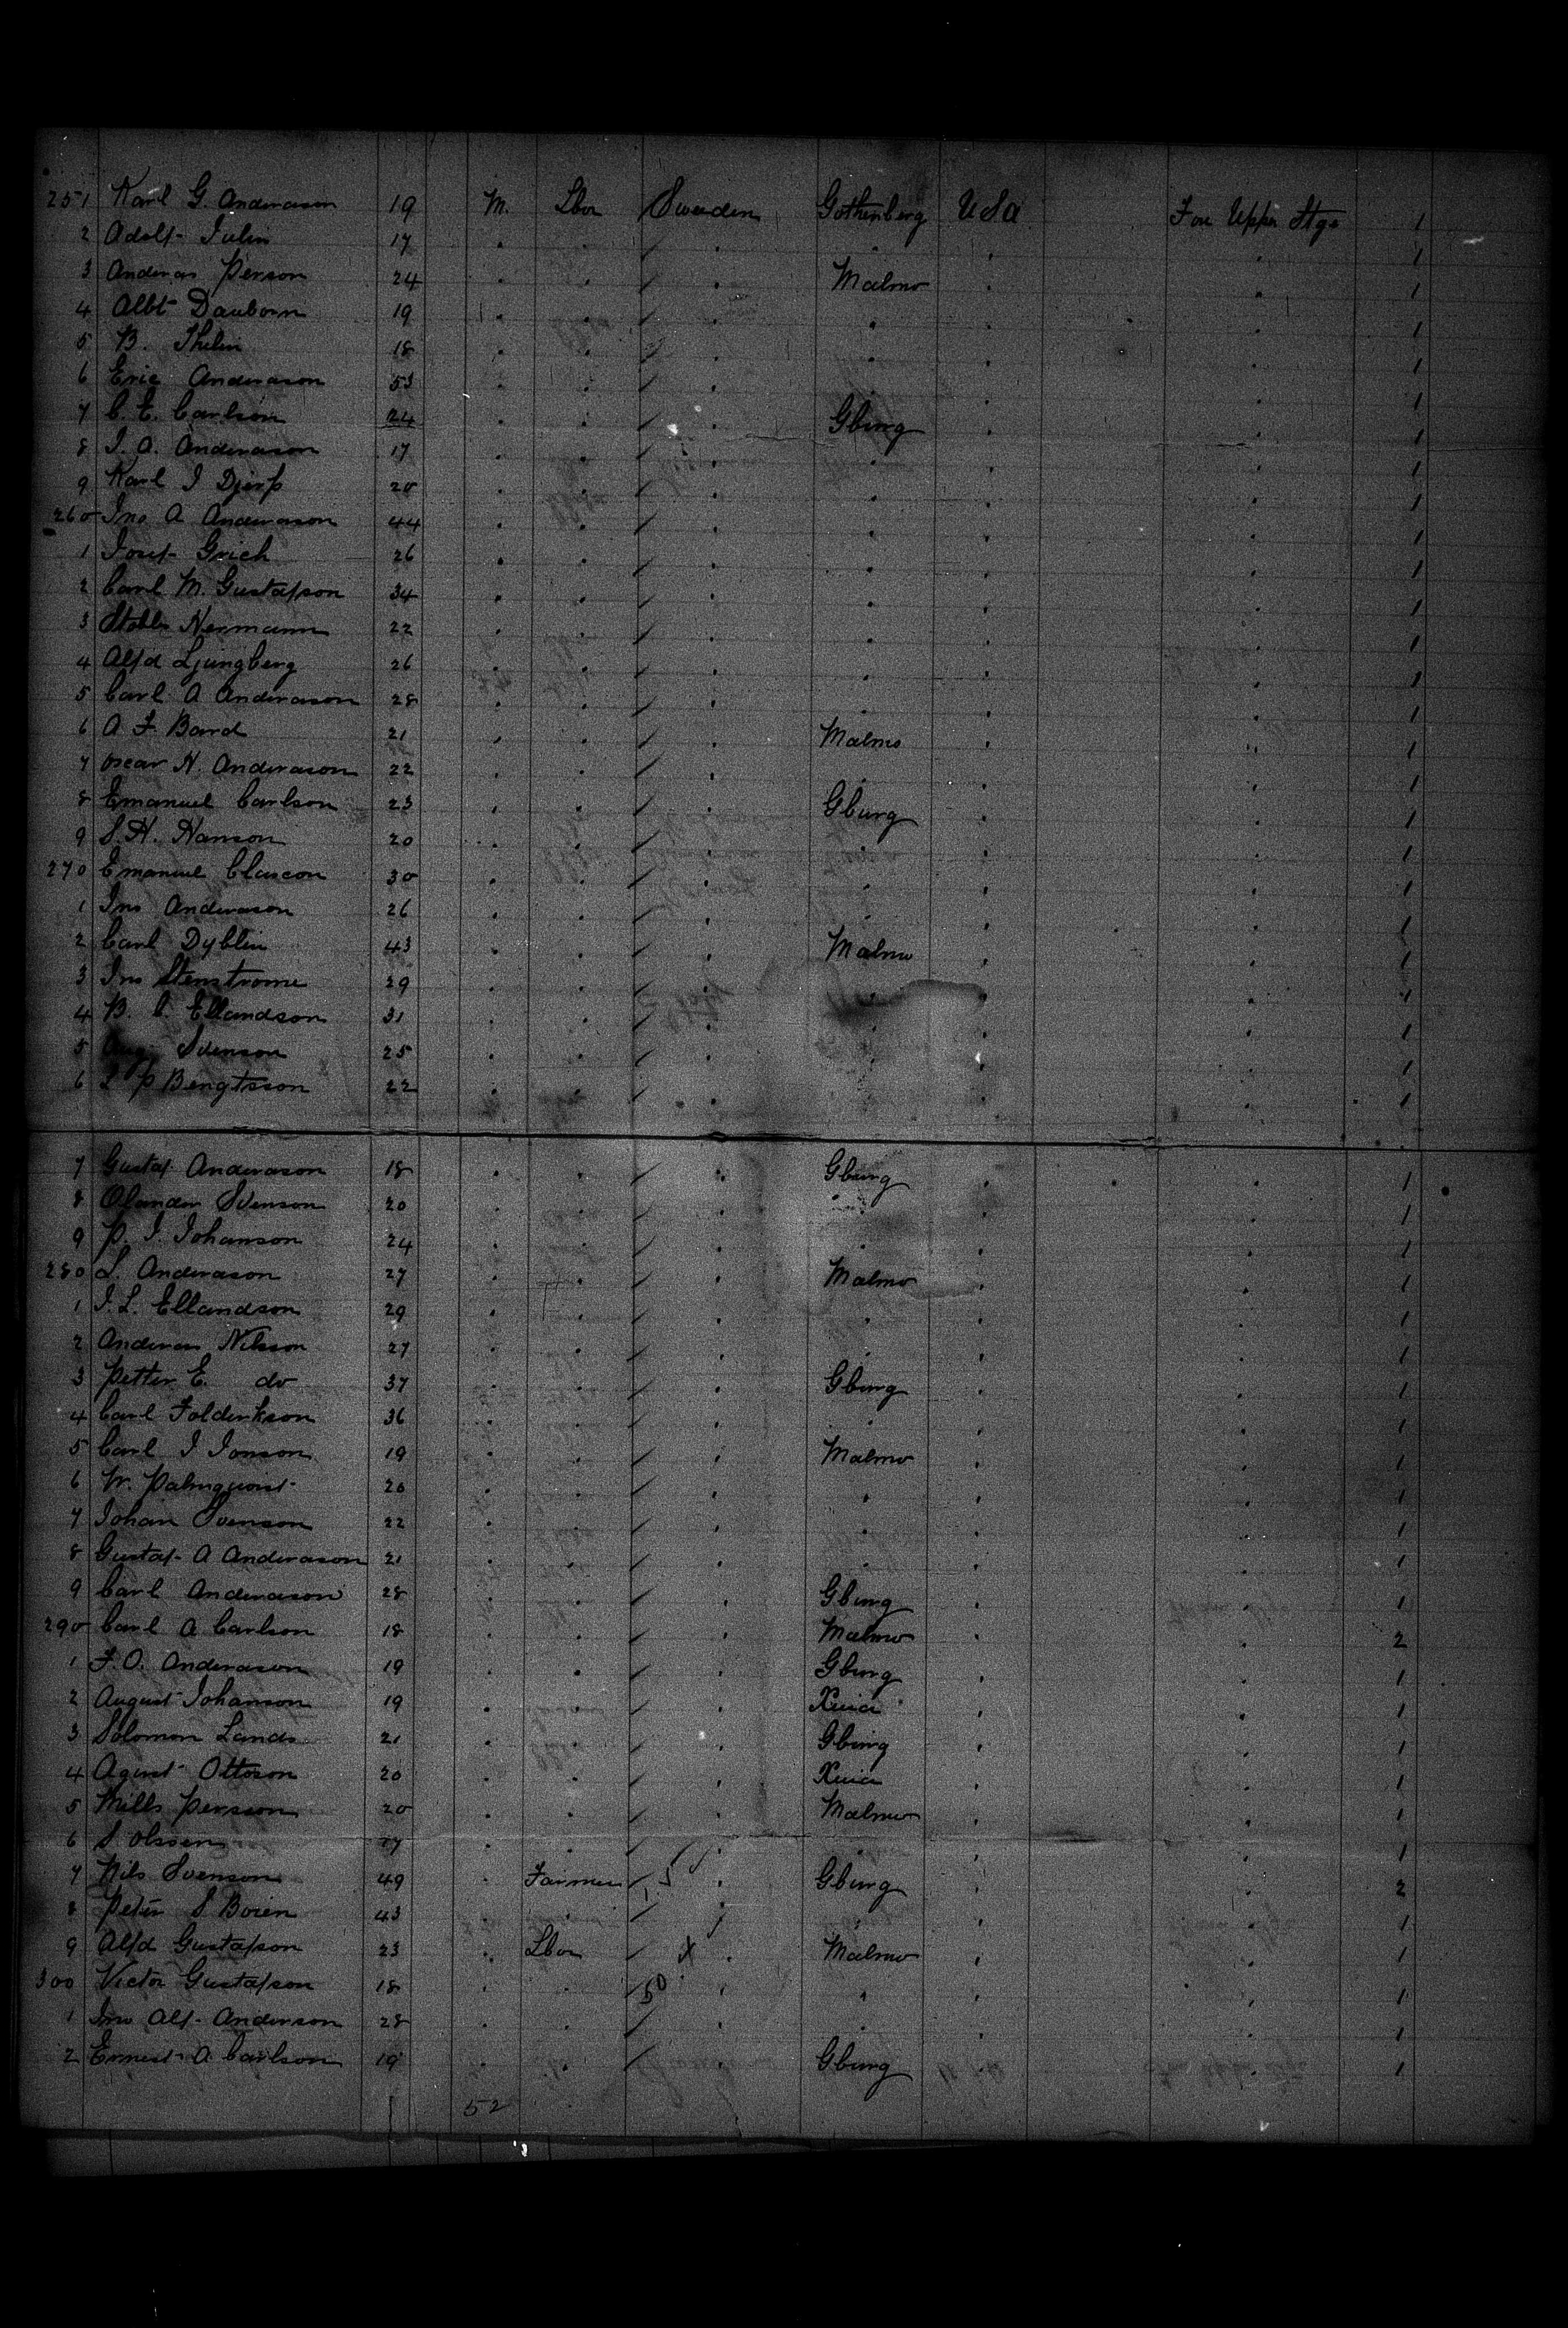 251 Karl G. Anderason 19 M. Lbor Sweden Gothenberg U S a For Upper Stgs 1
2 Adolf Julin 17 . . / . . . . 1
3 Anderas Person 24 . . / . Malmo . . 1
4 Albt Dauborn 19 . . / . . . . 1
5 B. Thelin 18 . . / . . . . 1
6 Eric Anderason 53 . . / . . . . 1
7 C. E. Carlson 24 . . / . Gburg . . 1
8 J. A. Anderason 17 . . / . . . . 1
9 Karl J Djerf 20 . . / . . . . 1
260 Jno A Anderason 44 . . / . . . . 1
1 Josef Grich 26 . . / . . . . 1
2 Carl M. Gustafson 34 . . / . . . . 1
3 Hermann 22 . . / . . . . 1
4 Alfd Ljungberg 26 . . / . . . . 1
5 Carl A Anderason 28 . . / . . . . 1
6 A F. Bard 21 . . / . Malmo . . 1
7 Oscar H. Anderason 22 . . / . . . 1
8 Emanuel Carlson 23 . . / . Gburg . . 1
9 S. H. Hanson 20 . . / . . . . 1
270 Emanuel Clascon 30 . . / . . . . 1
1 Jno Anderason 26 . . / . . . . 1
2 Carl Dyblin 43 . . / . Malmo . . 1
3 Jno Stenstrome 29 . . / . . . . 1
4 B. C. Ellandson 31 . . / . . . . 1
5 Aug. Svenson 25 . . / . . . . 1
6 L P Bengtsson 22 . . / . . . . 1
7 Gustaf Anderason 18 . . / . Gburg . . 1
8 Olander Svenson 20 . . / . . . . 1
9 P. J. Johanson 24 . . / . . . . 1
280 L. Anderason 27 . . / . Malmo . . 1
1 J. L. Ellandson 29 . . / . . . . 1
2 Anderas Nilsson 27 . . / . . . . 1
3 Petter E. do 37 . . / . Gburg . . 1
4 Carl Folderkson 36 . . / . . . . 1
5 Carl J Jonson 19 . . / . Malmo . . 1
6 W. Palmquist 20 . . / . . . . 1
7 Johan Svenson 22 . . / . . . . 1
8 Gustaf A Anderason 21 . . / . . . . 1
9 Carl Anderason 28 . . / . Gburg . . 1
290 Carl A Carlson 18 . . / . Malmo . . 2
1 F. O. Anderason 19 . . / . Gburg . . 1
2 August Johanson 19 . . / . Xnia . . 1
3 Solomon Lands 21 . . / . Gburg . . 1
4 Agust Ottoson 20 . . / . Xnia . . 1
5 Mills Persson 20 . . / . Malmo . . 1
6 S Olssen 17 . . / . . . 1
7 Nils Svenson 49 . Farmer / 5 . Gburg . . 2
8 Peter S Boren 43 . . / . . . . 1
9 Alfd Gustafson 23 . Lbor / X . Malmo . . 1
300 Victor Gustafson 18 . . 50 . . . . 1
1 Jno Alf. Anderson 28 . . / . . . . 1
2 Ernest A Carlson 19 . . / . Gburg . . 1
52